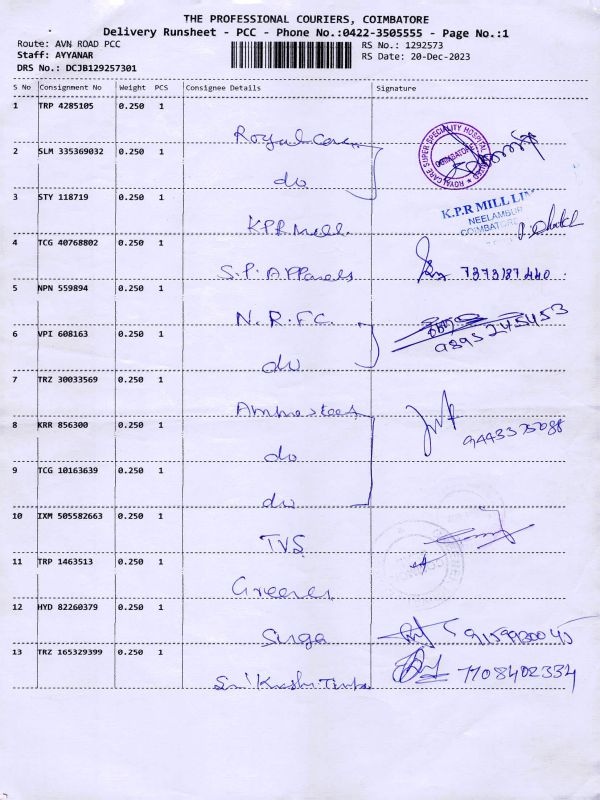 THE PROFESSIONAL COURIERS, COIMBATORE
Delivery Runsheet - PCC - Phone No.:0422-3505555 - Page No.:1
Route: AVN ROAD PCC
RS No.: 1292573
Staff: AYYANAR
RS Date: 20-Dec-2023
DRS No.: DCJB129257301
S No Consignment No Weight PCS Consignee Details Signature
1 TRP 4285105 0.250 1
Royal Care
2 SLM 335369032 0.250 1
do
ROYAL CARE SUPER SPECIALITY HOSPITAL LIMITED
COIMBATORE
3 STY 118719 0.250 1
KPR Mill.
K.P.R MILL LIM
NEELAMBUR
COIMBATORE
4 TCG 40768802 0.250 1
S.P. Apparels 7373187440.
5 NPN 559894 0.250 1
N.R.F.C. 9895245453
6 VPI 608163 0.250 1
do
7 TRZ 30033569 0.250 1
8 KRR 856300 0.250 1
do
9 TCG 10163639 0.250 1
do
10 IXM 505582663 0.250 1
TVS
11 TRP 1463513 0.250 1
12 HYD 82260379 0.250 1
13 TRZ 165329399 0.250 1
7708402334